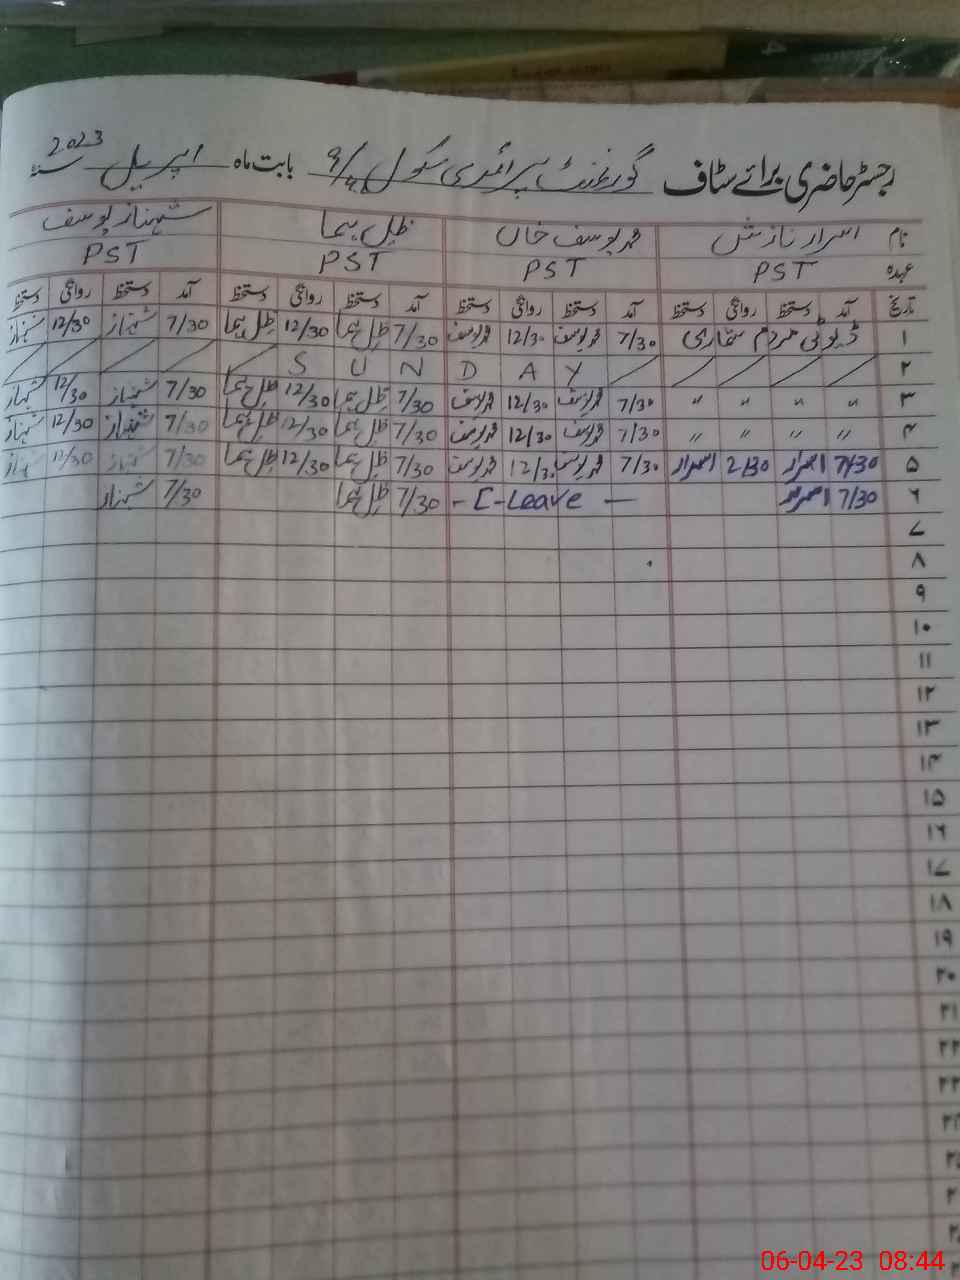 رجسٹر حاضری برائے سٹاف گورنمنٹ پرائمری سکول 9/4 بابت ماہ اپریل سنہ 2023
نام اسرار نازش محمد یوسف خاں ظل ہما شہناز یوسف
عہدہ PST PST PST PST
تاریخ آمد دستخط روانگی دستخط آمد دستخط روانگی دستخط آمد دستخط روانگی دستخط آمد دستخط روانگی دستخط
۱ ڈیوٹی مردم شماری 7/30 محمد یوسف 12/30 محمد یوسف 7/30 ظل ہما 12/30 ظل ہما 7/30 شہناز 12/30 شہناز
۲ S U N D A Y
۳ " " " " 7/30 محمد یوسف 12/30 محمد یوسف 7/30 ظل ہما 12/30 ظل ہما 7/30 شہناز 12/30 شہناز
۴ " " " " 7/30 محمد یوسف 12/30 محمد یوسف 7/30 ظل ہما 12/30 ظل ہما 7/30 شہناز 12/30 شہناز
۵ 7/30 اسرار 2/30 اسرار 7/30 محمد یوسف 12/30 محمد یوسف 7/30 ظل ہما 12/30 ظل ہما 7/30 شہناز 12/30 شہناز
۶ 7/30 اسرار - C-Leave - 7/30 ظل ہما 7/30 شہناز
۷
۸
۹
۱۰
۱۱
۱۲
۱۳
۱۴
۱۵
۱۶
۱۷
۱۸
۱۹
۲۰
۲۱
۲۲
۲۳
۲۴
06-04-23 08:44